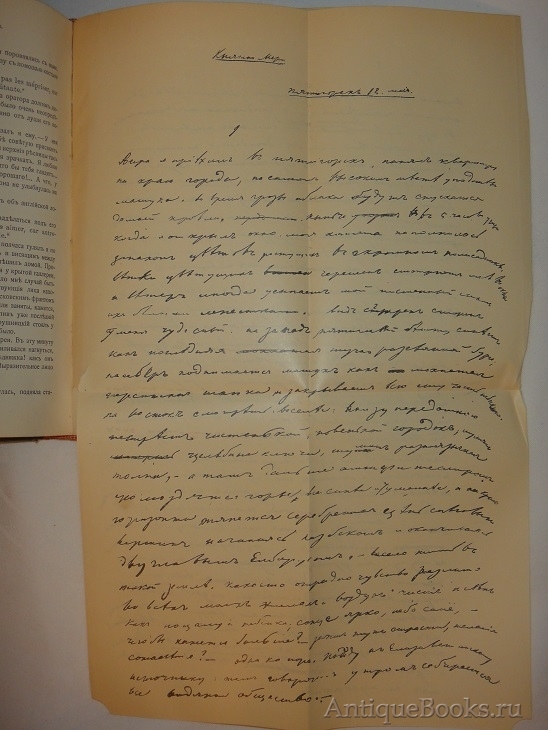 Княжна Мери
Пятигорскъ 12. мая.
1
Вчера я пріѣхалъ въ Пятигорскъ, нанялъ квартиру
на краю города, на самомъ высокомъ мѣстѣ, у подошвы
Машука: во время грозы облака будутъ спускаться до
моей кровли. нынче въ 5 часовъ утра
когда я открылъ окно, моя комната наполнилась
запахомъ цвѣтовъ растущихъ въ скромномъ палисадникѣ
вѣтки цвѣтущихъ черешень смотрятъ мнѣ въ окны
и вѣтеръ иногда усыпаетъ мой письменный столъ
ихъ бѣлыми лепестками. Видъ съ трехъ сторонъ
у меня чудесный. на западъ пятиглавый Бешту синѣетъ
какъ послѣдняя туча разсѣянной бури
на сѣверъ поднимается Машукъ какъ мохнатая
персидская шапка и закрываетъ всю эту часть
на востокъ смотрѣть веселѣе: внизу передо мною
чистенькой, новенькой городокъ, шумятъ
цѣлебные ключи, шумитъ разноязычная
толпа, - а тамъ дальше амфитеатромъ
громоздятся горы все синѣе и туманнѣе, а на краю
горизонта тянется серебряная цѣпь снѣговыхъ
вершинъ начинаясь Казбекомъ и оканчиваясь
двуглавымъ Ельборусомъ. - весело жить въ
такой землѣ. какое-то отрадное чувство разлито
во всѣхъ моихъ жилахъ. воздухъ чистъ и свѣжъ
какъ поцѣлуй ребенка, солнце ярко, небо сине, -
чего бы кажется больше? зачѣмъ тутъ страсти, желанія
сожалѣнія? однако пора. пойду къ Елизаветинскому
источнику: тамъ говорятъ утромъ собирается
все водяное общество.
AntiqueBooks.ru